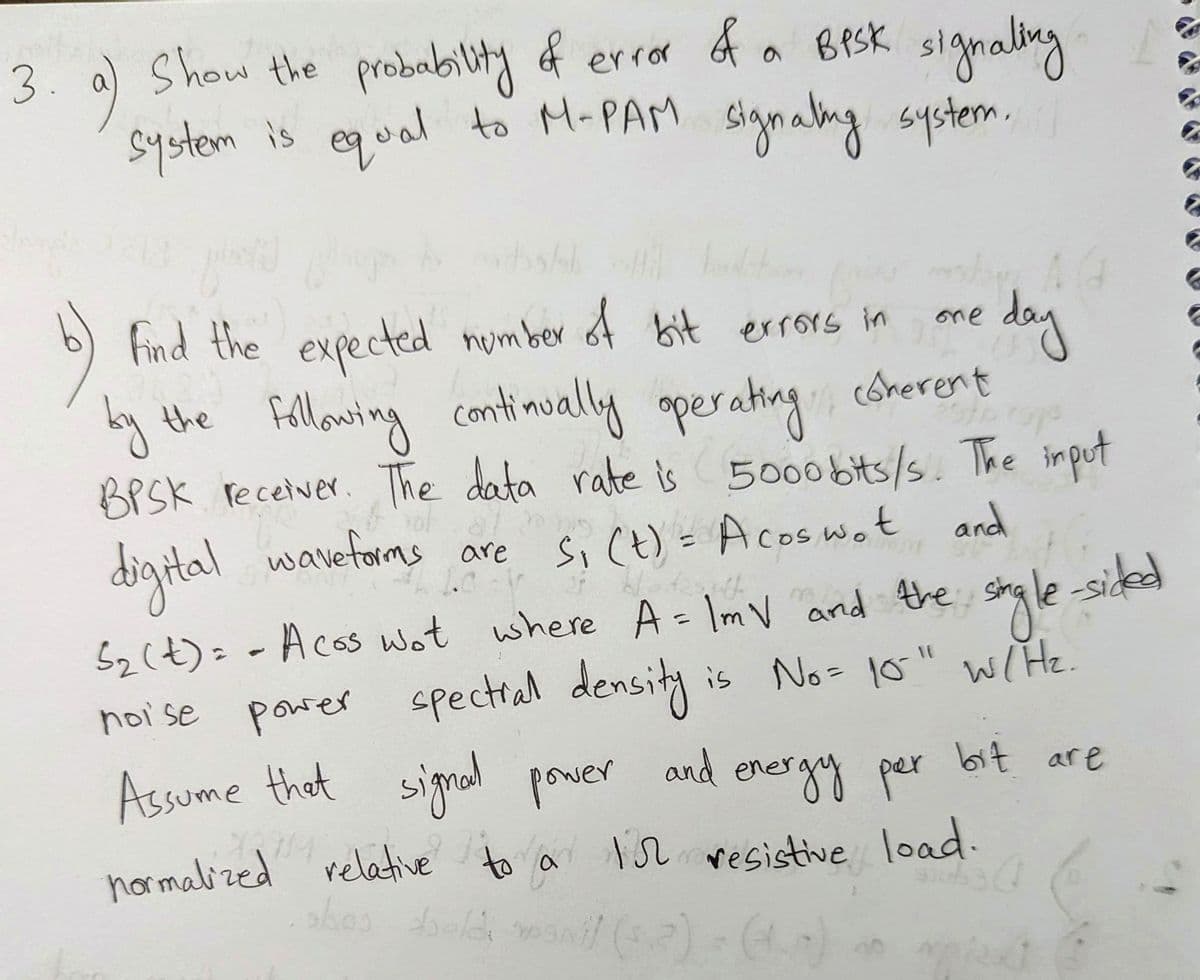 3. a) Show the probability of error of a BPSK signaling
system is equal to M-PAM signaling system.
b) Find the expected number of bit errors in one day
by the following continually operating coherent
BPSK receiver. The data rate is 5000 bits/s. The input
digital waveforms are S₁(t) = A cos w₀t and
S₂(t) = - A cos w₀t where A = 1mV and the single-sided
noise power spectral density is N₀ = 10⁻¹¹ W/Hz.
Assume that signal power and energy per bit are
normalized relative to a 1Ω resistive load.